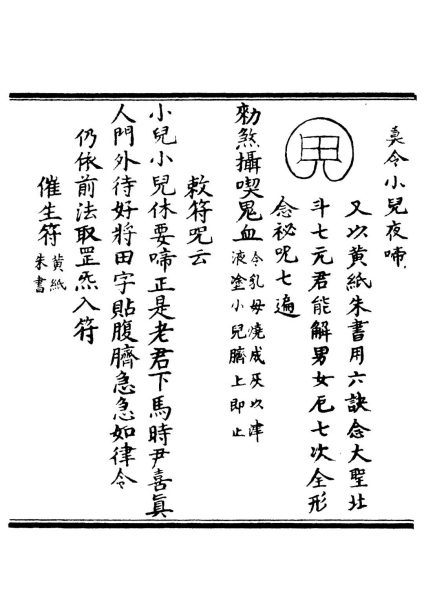 真令小兒夜啼
又以黄紙朱書用六訣念大聖北
斗七元君能解男女厄七次全形
念祕呪七遍
勑煞攝喫鬼血令乳母燒成灰以津
液塗小兒臍上即止
敕符呪云
小兒小兒休要啼正是老君下馬時尹喜真
人門外待好將田字貼腹臍急急如律令
仍依前法取罡炁入符
催生符黄紙
朱書